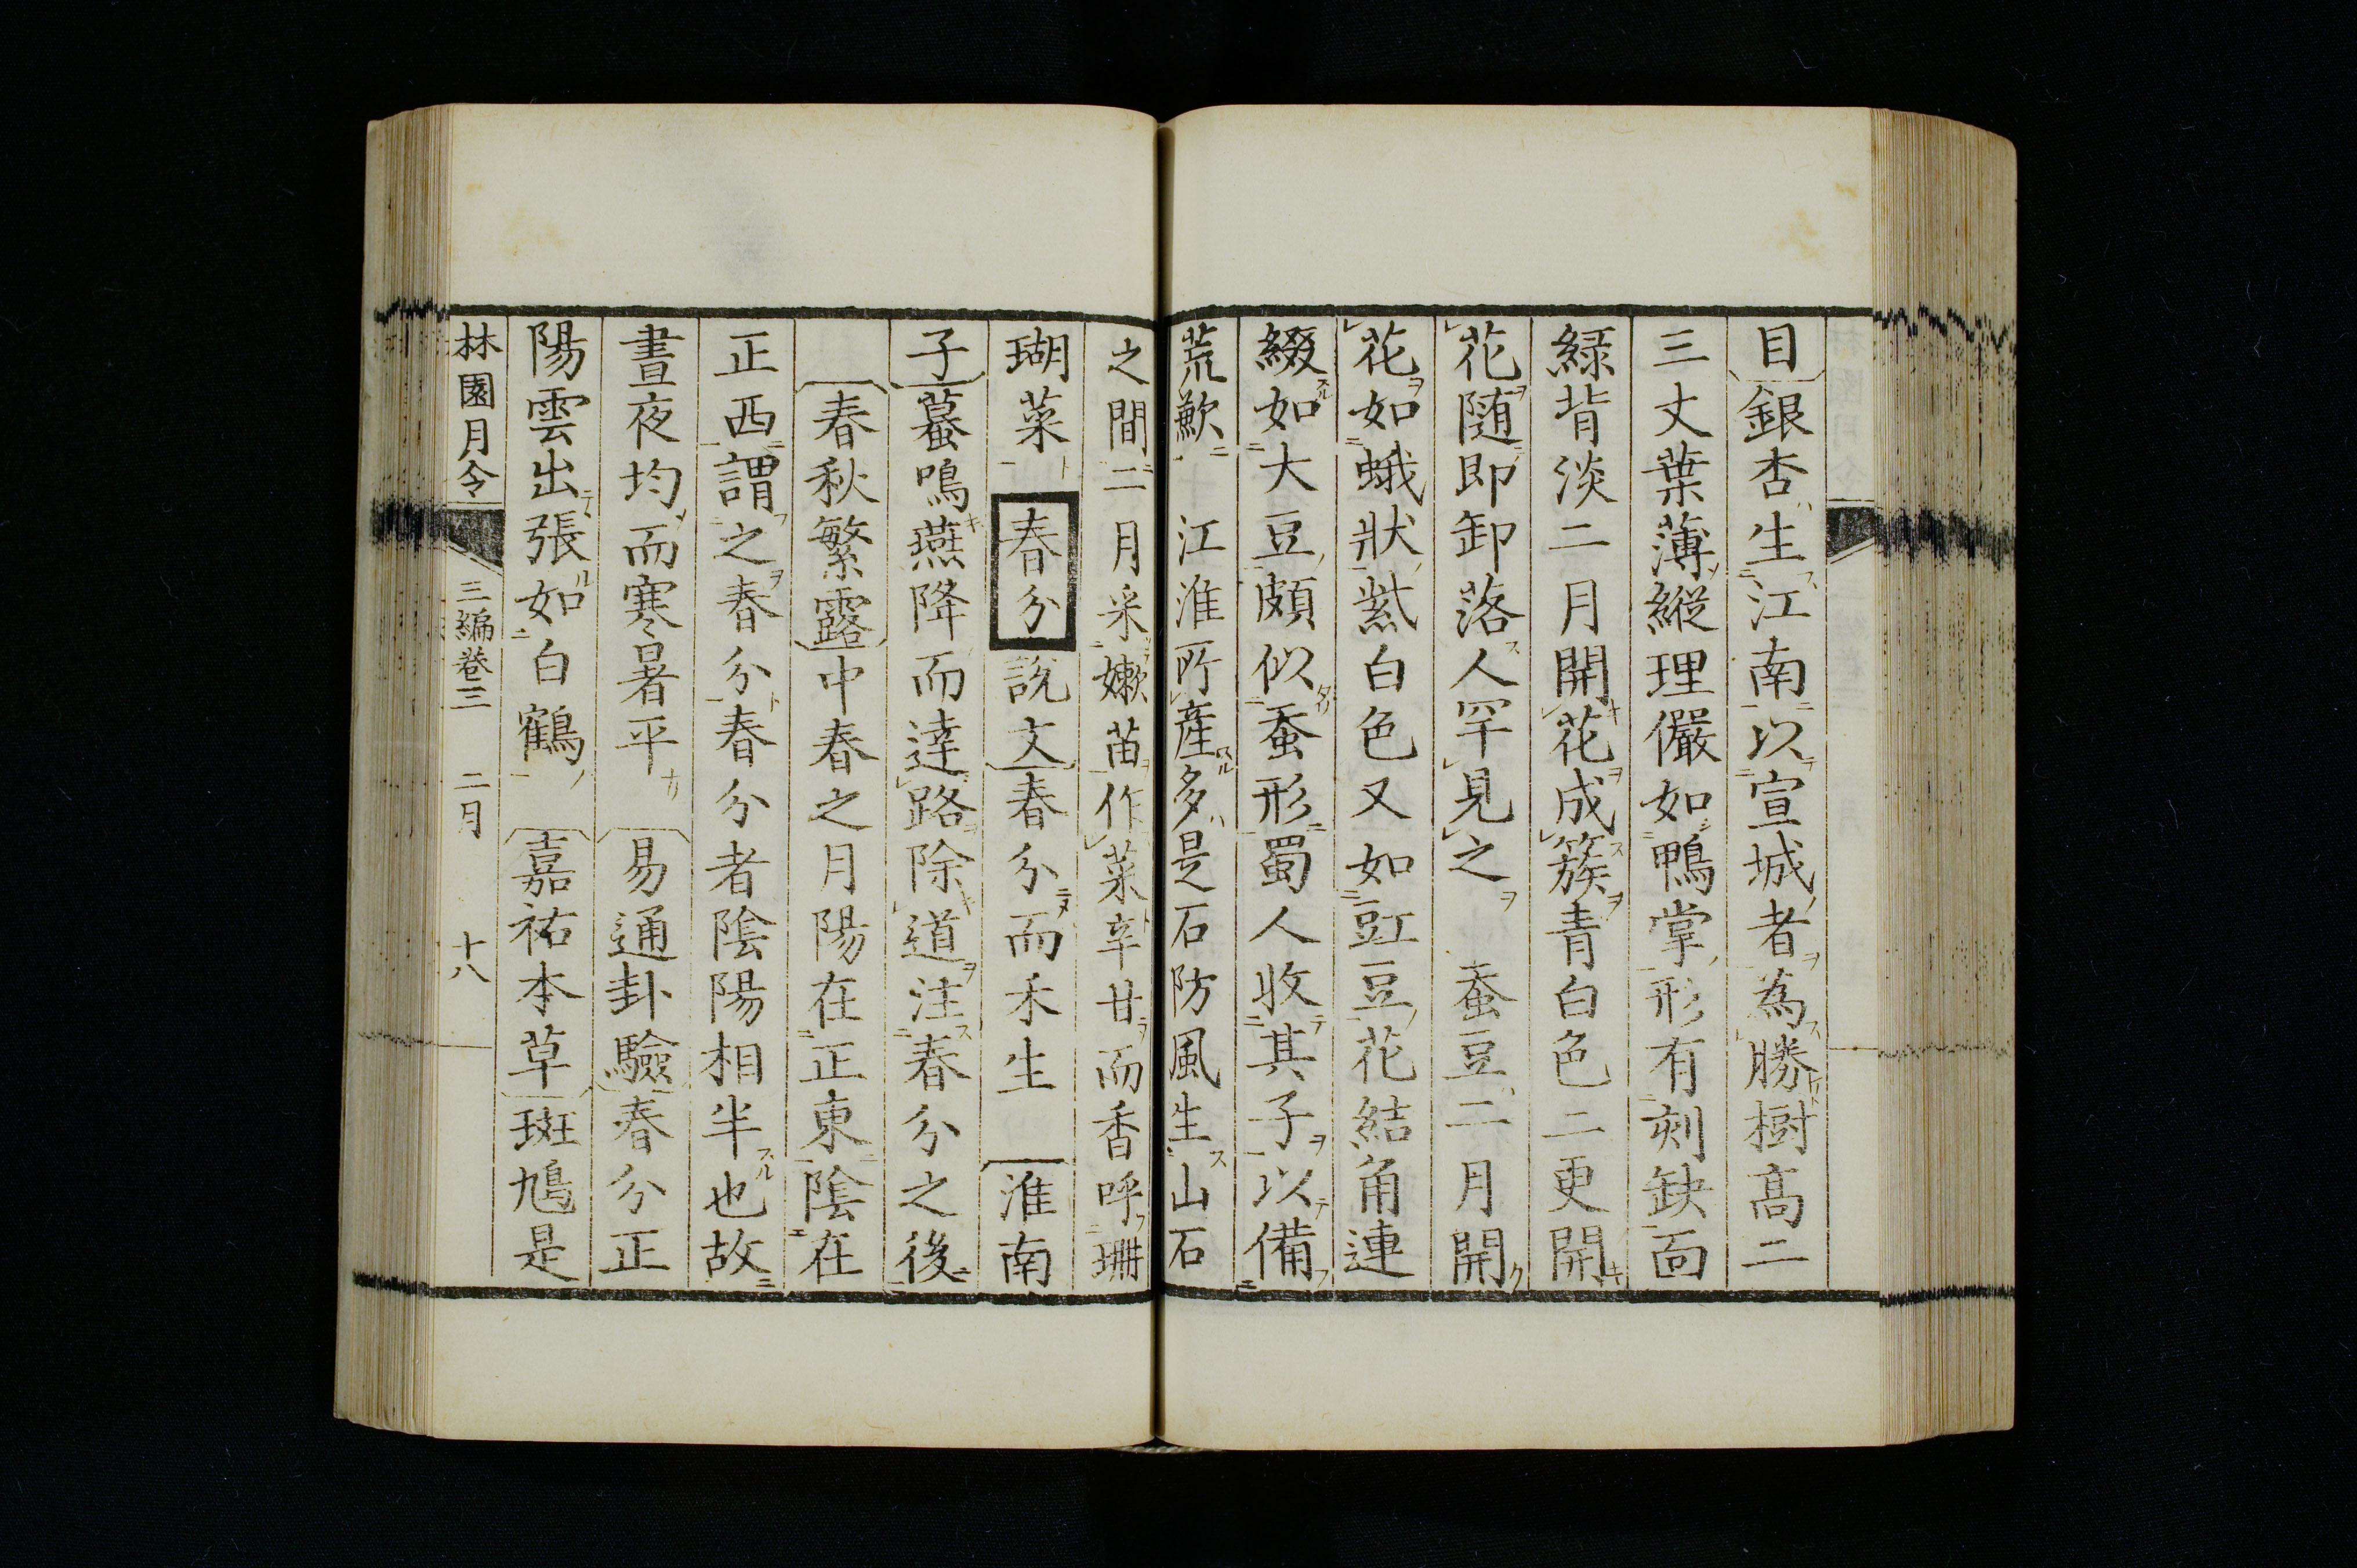 目銀杏生江南以宣城者為勝樹高二
三丈葉薄縦理儼如鴨掌形有刻缺面
緑背淡二月開花成簇青白色二更開
花随即卸落人罕見之　蚕豆二月開
花如蛾狀紫白色又如豇豆花結角連
綴如大豆頗似蚕形蜀人收其子以備
荒歉　江淮所產多是石防風生山石
之間二月采嫩苗作菜辛甘而香呼珊
瑚菜　春分　說文春分而禾生　淮南
子蟇鳴燕降而達路除道注春分之後
春秋繁露中春之月陽在正東陰在
正西謂之春分春分者陰陽相半也故
晝夜均而寒暑平　易通卦驗春分正
陽雲出張如白鶴　嘉祐本草斑鳩是
林園月令　三編卷三　二月　十八